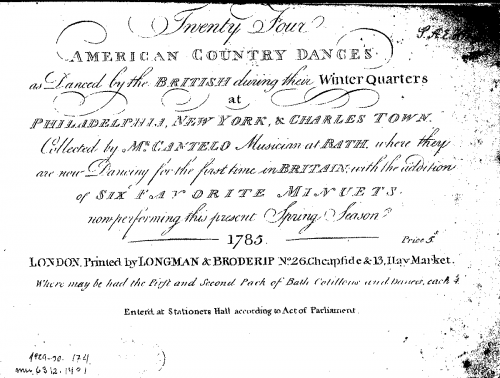 Twenty Four
AMERICAN COUNTRY DANCES
as Danced by the BRITISH during their Winter Quarters
at
PHILADELPHIA, NEW YORK, & CHARLES TOWN.
Collected by Mr. CANTELO Musician at BATH, where they
are now Dancing for the first time in BRITAIN, with the addition
of SIX FAVORITE MINUETS.
now performing this present Spring Season
1785. Price 5s.
LONDON, Printed by LONGMAN & BRODERIP No. 26, Cheapside & 13, Hay Market.
Where may be had the First and Second Pack of Bath Cotillons and Dances, each 4
Enterd at Stationers Hall according to Act of Parliament
174